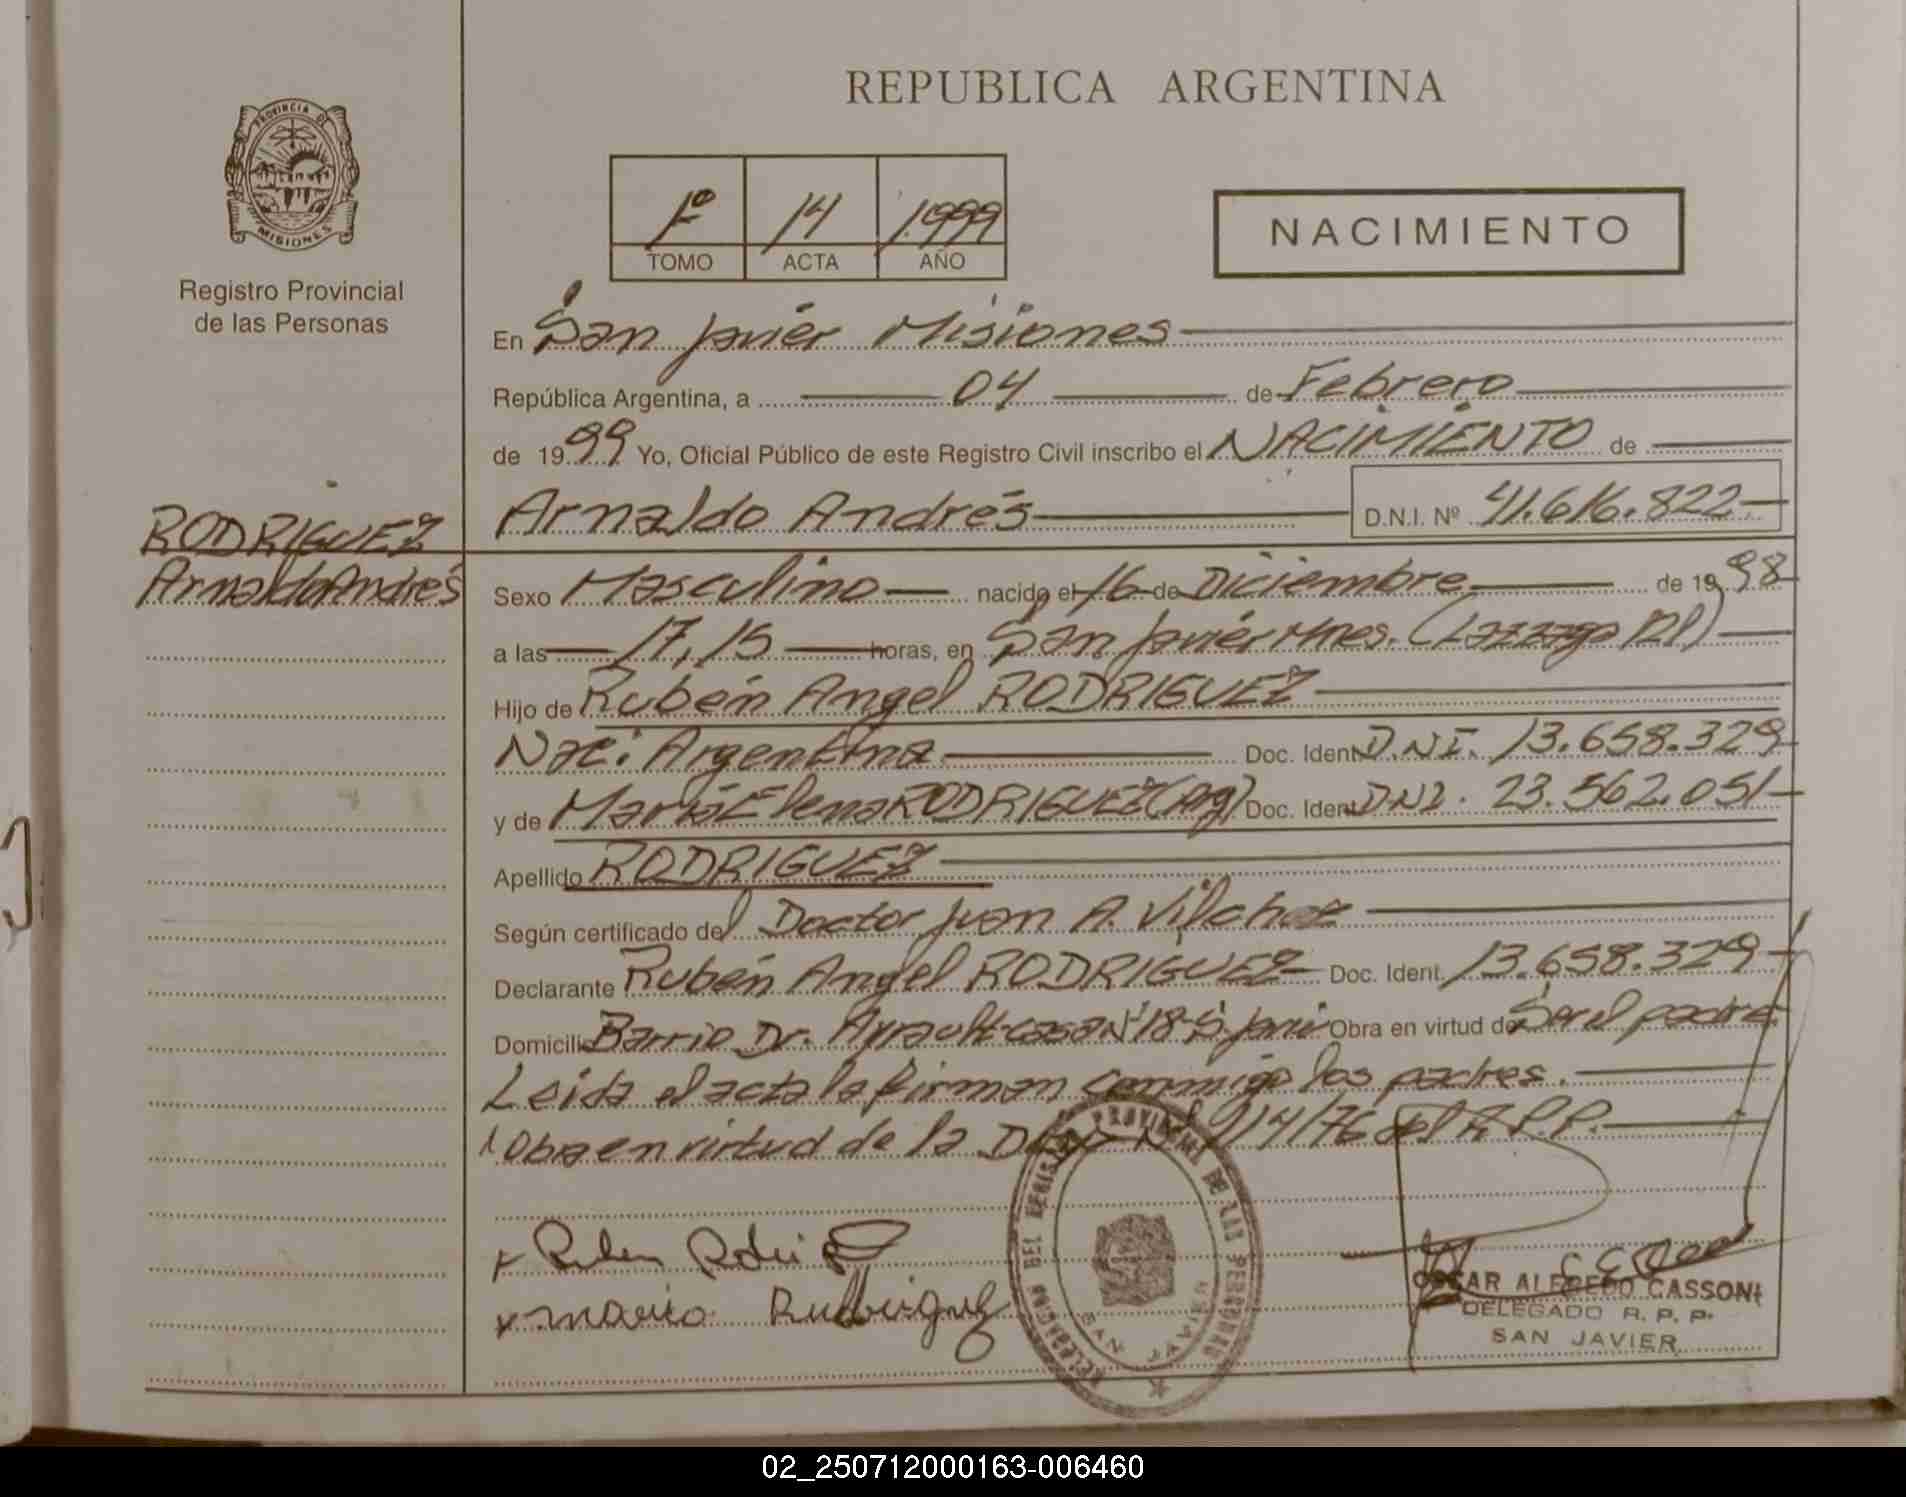 REPUBLICA ARGENTINA
PROVINCIA DE
MISIONES
Registro Provincial
de las Personas
1º 14 1.999
TOMO ACTA AÑO
NACIMIENTO
En San Javier Misiones
República Argentina, a 04 de Febrero
de 1999 Yo, Oficial Público de este Registro Civil inscribo el NACIMIENTO de
Arnaldo Andrés D.N.I. Nº 41.616.822
RODRIGUEZ
Arnaldo Andrés
Sexo Masculino nacido el 16 de Diciembre de 1998
a las 17,15 horas, en San Javier Mnes.
Hijo de Rubén Angel RODRIGUEZ
Naci: Argentina Doc. Ident. D.N.I. 13.658.329
y de María Elena RODRIGUEZ (Arg) Doc. Ident. D.N.I. 23.562.051
Apellido RODRIGUEZ
Según certificado del Doctor Juan A. Vilchez
Declarante Rubén Angel RODRIGUEZ Doc. Ident. 13.658.329
Domicilio Barrio Dr. Ayrault casa Nº 18 S. Javi Obra en virtud de Ser el padre
Leida el acta la firman conmigo los padres.
Obra en virtud de la Disp Nº 914/76 del R.P.P.
Ruben Rodri
maria Rudriguez
DELEGACION DEL REGISTRO PROVINCIAL DE LAS PERSONAS
SAN JAVIER
OSCAR ALFREDO CASSONI
DELEGADO R. P. P.
SAN JAVIER
02_250712000163-006460